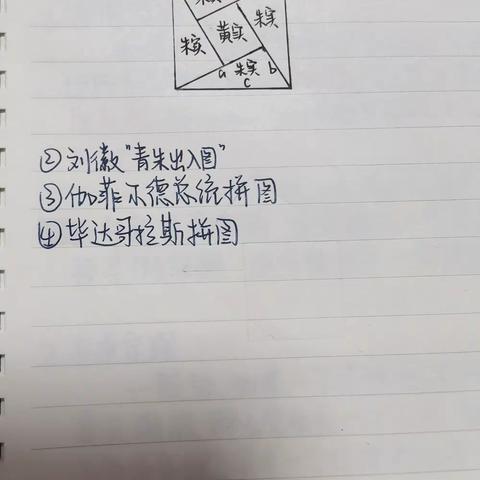 朱实
朱实
朱实 黄实
a 朱实 b
c
②刘徽“青朱出入图”
③伽菲尔德总统拼图
④毕达哥拉斯拼图